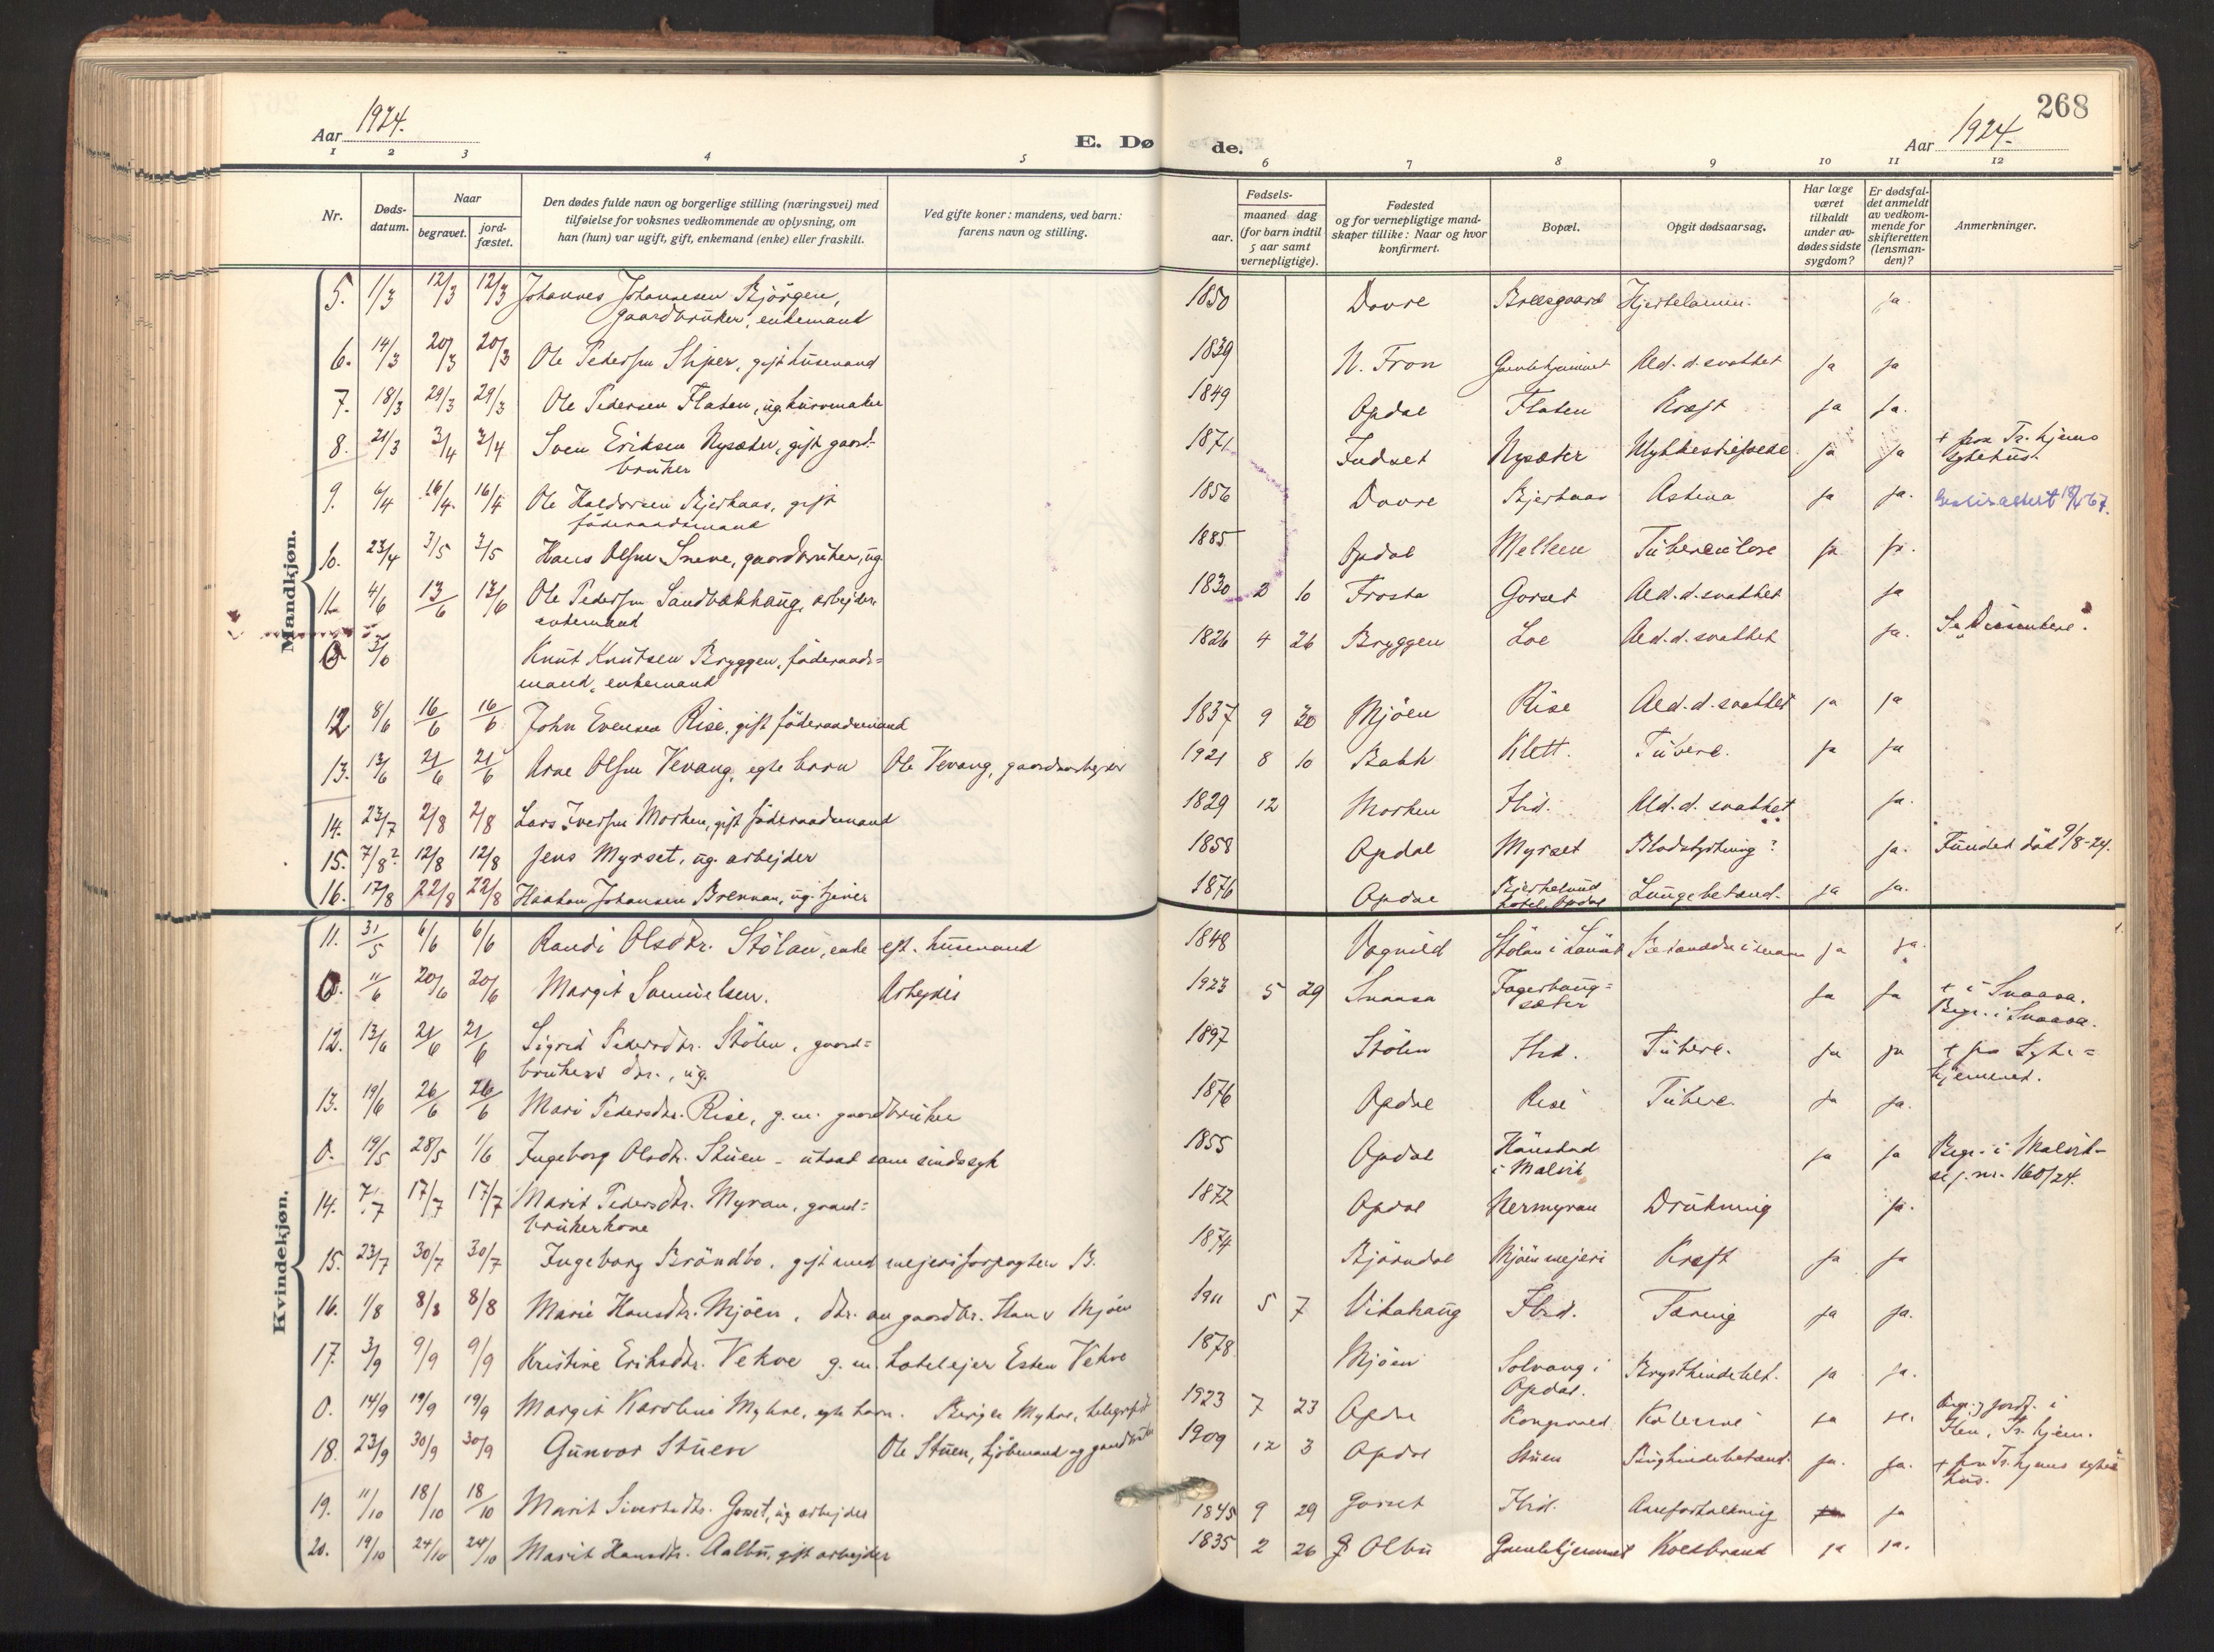 268
Aar 1924.
E. Døde.
Aar 1924.
1 2 3 4 5 6 7 8 9 10 11 12
Nr.
Døds-
datum.
Naar
begravet.
jord-
fæstet.
Den dødes fulde navn og borgerlige stilling (næringsvei) med
tilføielse for voksnes vedkommende av oplysning, om
han (hun) var ugift, gift, enkemand (enke) eller fraskilt.
Ved gifte koner: mandens, ved barn:
farens navn og stilling.
Fødsels-
aar.
maaned dag
(for barn indtil
5 aar samt
vernepligtige).
Fødested
og for vernepligtige mand-
skaper tillike: Naar og hvor
konfirmert.
Bopæl.
Opgit dødsaarsag.
Har læge
været
tilkaldt
under av-
dødes sidste
sygdom?
Er dødsfal-
det anmeldt
av vedkom-
mende for
skifteretten
(lensman-
den)?
Anmerkninger.
Mandkjøn.
5. 1/3 12/3 12/3 Johannes Johannesen Bjørgen, 1850 Dovre ja.
gaardbruker, enkemand
6. 14/3 20/3 20/3 Ole Pedersen gift husmand 1839 N. Fron Gamlehjemmet Ald. d. svakhet ja ja
7. 18/3 29/3 29/3 Ole Pedersen Flaten, ug. kurvmaker 1849 Opdal Flaten Kræft ja ja.
8. 21/3 3/4 3/4 Sven Eriksen Nysæter, gift gaard- 1871 Indset Nysæter ja ja + paa Tr. hjems
bruker sykehus.
9. 6/4 16/4 16/4 Ole Haldorsen Bjerkaas, gift 1856 Dovre Bjerkaas Astma ja ja.
føderaadsmand
10. 23/4 3/5 3/5 Hans Olsen Sneve, gaardbruker, ug. 1885 Opdal Mellem Tuberculose ja ja.
11. 4/6 13/6 13/6 Ole Pedersen Sandbækhaug, arbeider 1830 2 10 Frosta Gorset Ald. d. svakhet ja
enkemand
0 3/6 Knut Knutsen Bryggen, føderaads= 1826 4 26 Bryggen Loe Ald. d. svakhet ja.
mand, enkemand
12 8/6 16/6 16/6 John Evensen Rise, gift føderaadsmand 1837 9 20 Mjøen Rise Ald. d. svakhet ja ja
13. 13/6 21/6 21/6 Arne Olsen Vevang, egte barn Ole Vevang, gaardsarbeider 1921 8 10 Bakk Klett. Tuberc. ja ja
14. 23/7 2/8 2/8 Lars Iversen Morken, gift føderaadsmand 1829 12 Morken Ibid. Ald. d. svakhet ja.
15. 7/8? 12/8 12/8 Jens Myrset, ug. arbejder 1858 Opdal Myrset Blodstyrtning? ja. Fundet død 9/8-24.
16. 17/8 22/8 22/8 Haakon Johansen Brennan, ug. 1876 Opdal Lungebetænd. ja ja.
Kvindekjøn.
11. 31/5 6/6 6/6 Randi Olsdtr. Stølan, enke eft. husmand 1848 Vognild ja ja.
0. 11/6 20/6 20/6 Margit Samuelsen. Arbejder 1923 5 29 Snaasa Fagerhaug= ja ja + i Snaasa.
sæter Begr. i Snaasa.
12. 13/6 21/6 21/6 Sigrid Pedersdtr. Stølen, gaard= 1897 Stølen Ibid. Tuberc. ja ja + paa Syke=
brukers dtr., ug. hjemmet.
13. 19/6 26/6 26/6 Mari Pedersdtr. Rise, g. m. gaardbruker 1876 Opdal Rise Tuberc. ja ja.
0. 19/5 28/5 1/6 Ingeborg Olsdtr. Stuen - utsat som sindssyk 1855 Opdal ja ja Begr. i Malvik-
i Malvik 160/24.
14. 7/7 17/7 17/7 Marit Pedersdtr. Myran, gaard= 1872 Opdal Nermyran Drukning ja.
brukerkone
15. 23/7 30/7 30/7 Ingeborg Brøndbo, gift med mejeriforpagter B. 1874 Bjørndal Mjøen mejeri Kræft ja ja
16. 1/8 8/8 8/8 Marie Hansdtr. Mjøen, dtr. av gaardbr. Hans Mjøen 1911 5 7 Vikahaug Ibid. Tæring ja ja.
17. 3/9 9/9 9/9 Kristine Eriksdtr. Vekve g. m. hotelejer Esten Vekve 1878 Mjøen Solvang i Brysthindebet. ja ja.
Opdal.
0. 14/9 19/9 19/9 Margit Karoline Myhre, egte barn. Birger Myhre, telegrafist 1923 7 23 Opdal Kongsvold Kolerine ja ja. Begr. og jordf. i
Ilen, Tr.hjem.
18. 23/9 30/9 30/9 Gunvor Stuen Ole Stuen, kjøbmand og gaardbruker 1909 12 3 Opdal Stuen Bughindebetænd. ja. ja. + paa Tr. hjems syke=
hus.
19. 11/10 18/10 18/10 Marit Sivertsdtr. Gorset, ug. arbejder 1845 9 29 Gorset Ibid. Aareforkalkning ja
20. 19/10 24/10 24/10 Marit Hansdtr. Aalbu, gift arbejder 1835 2 26 Olbu Gamlehjemmet Koldbrand ja ja.